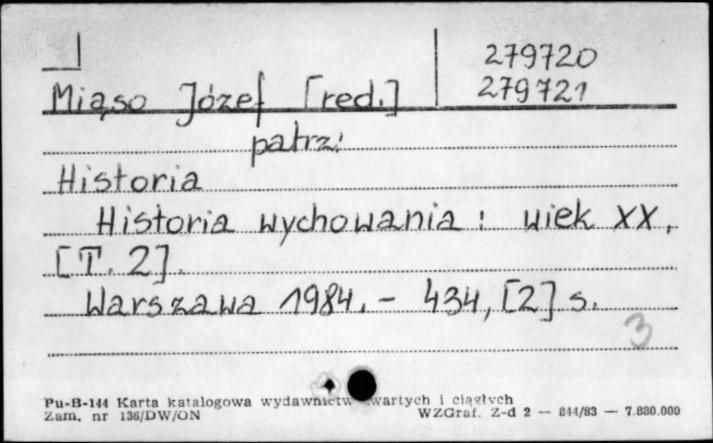 279720
Miąso Józef [red.] 279721
patrz:
Historia
Historia wychowania : wiek XX.
[T. 2].
Warszawa 1984. - 434, [2] s.
3
Pu-B-144 Karta katalogowa wydawnictw zwartych i ciągłych
Zam. nr 136/DW/ON WZGraf. Z-d 2 — 844/83 — 7.880.000